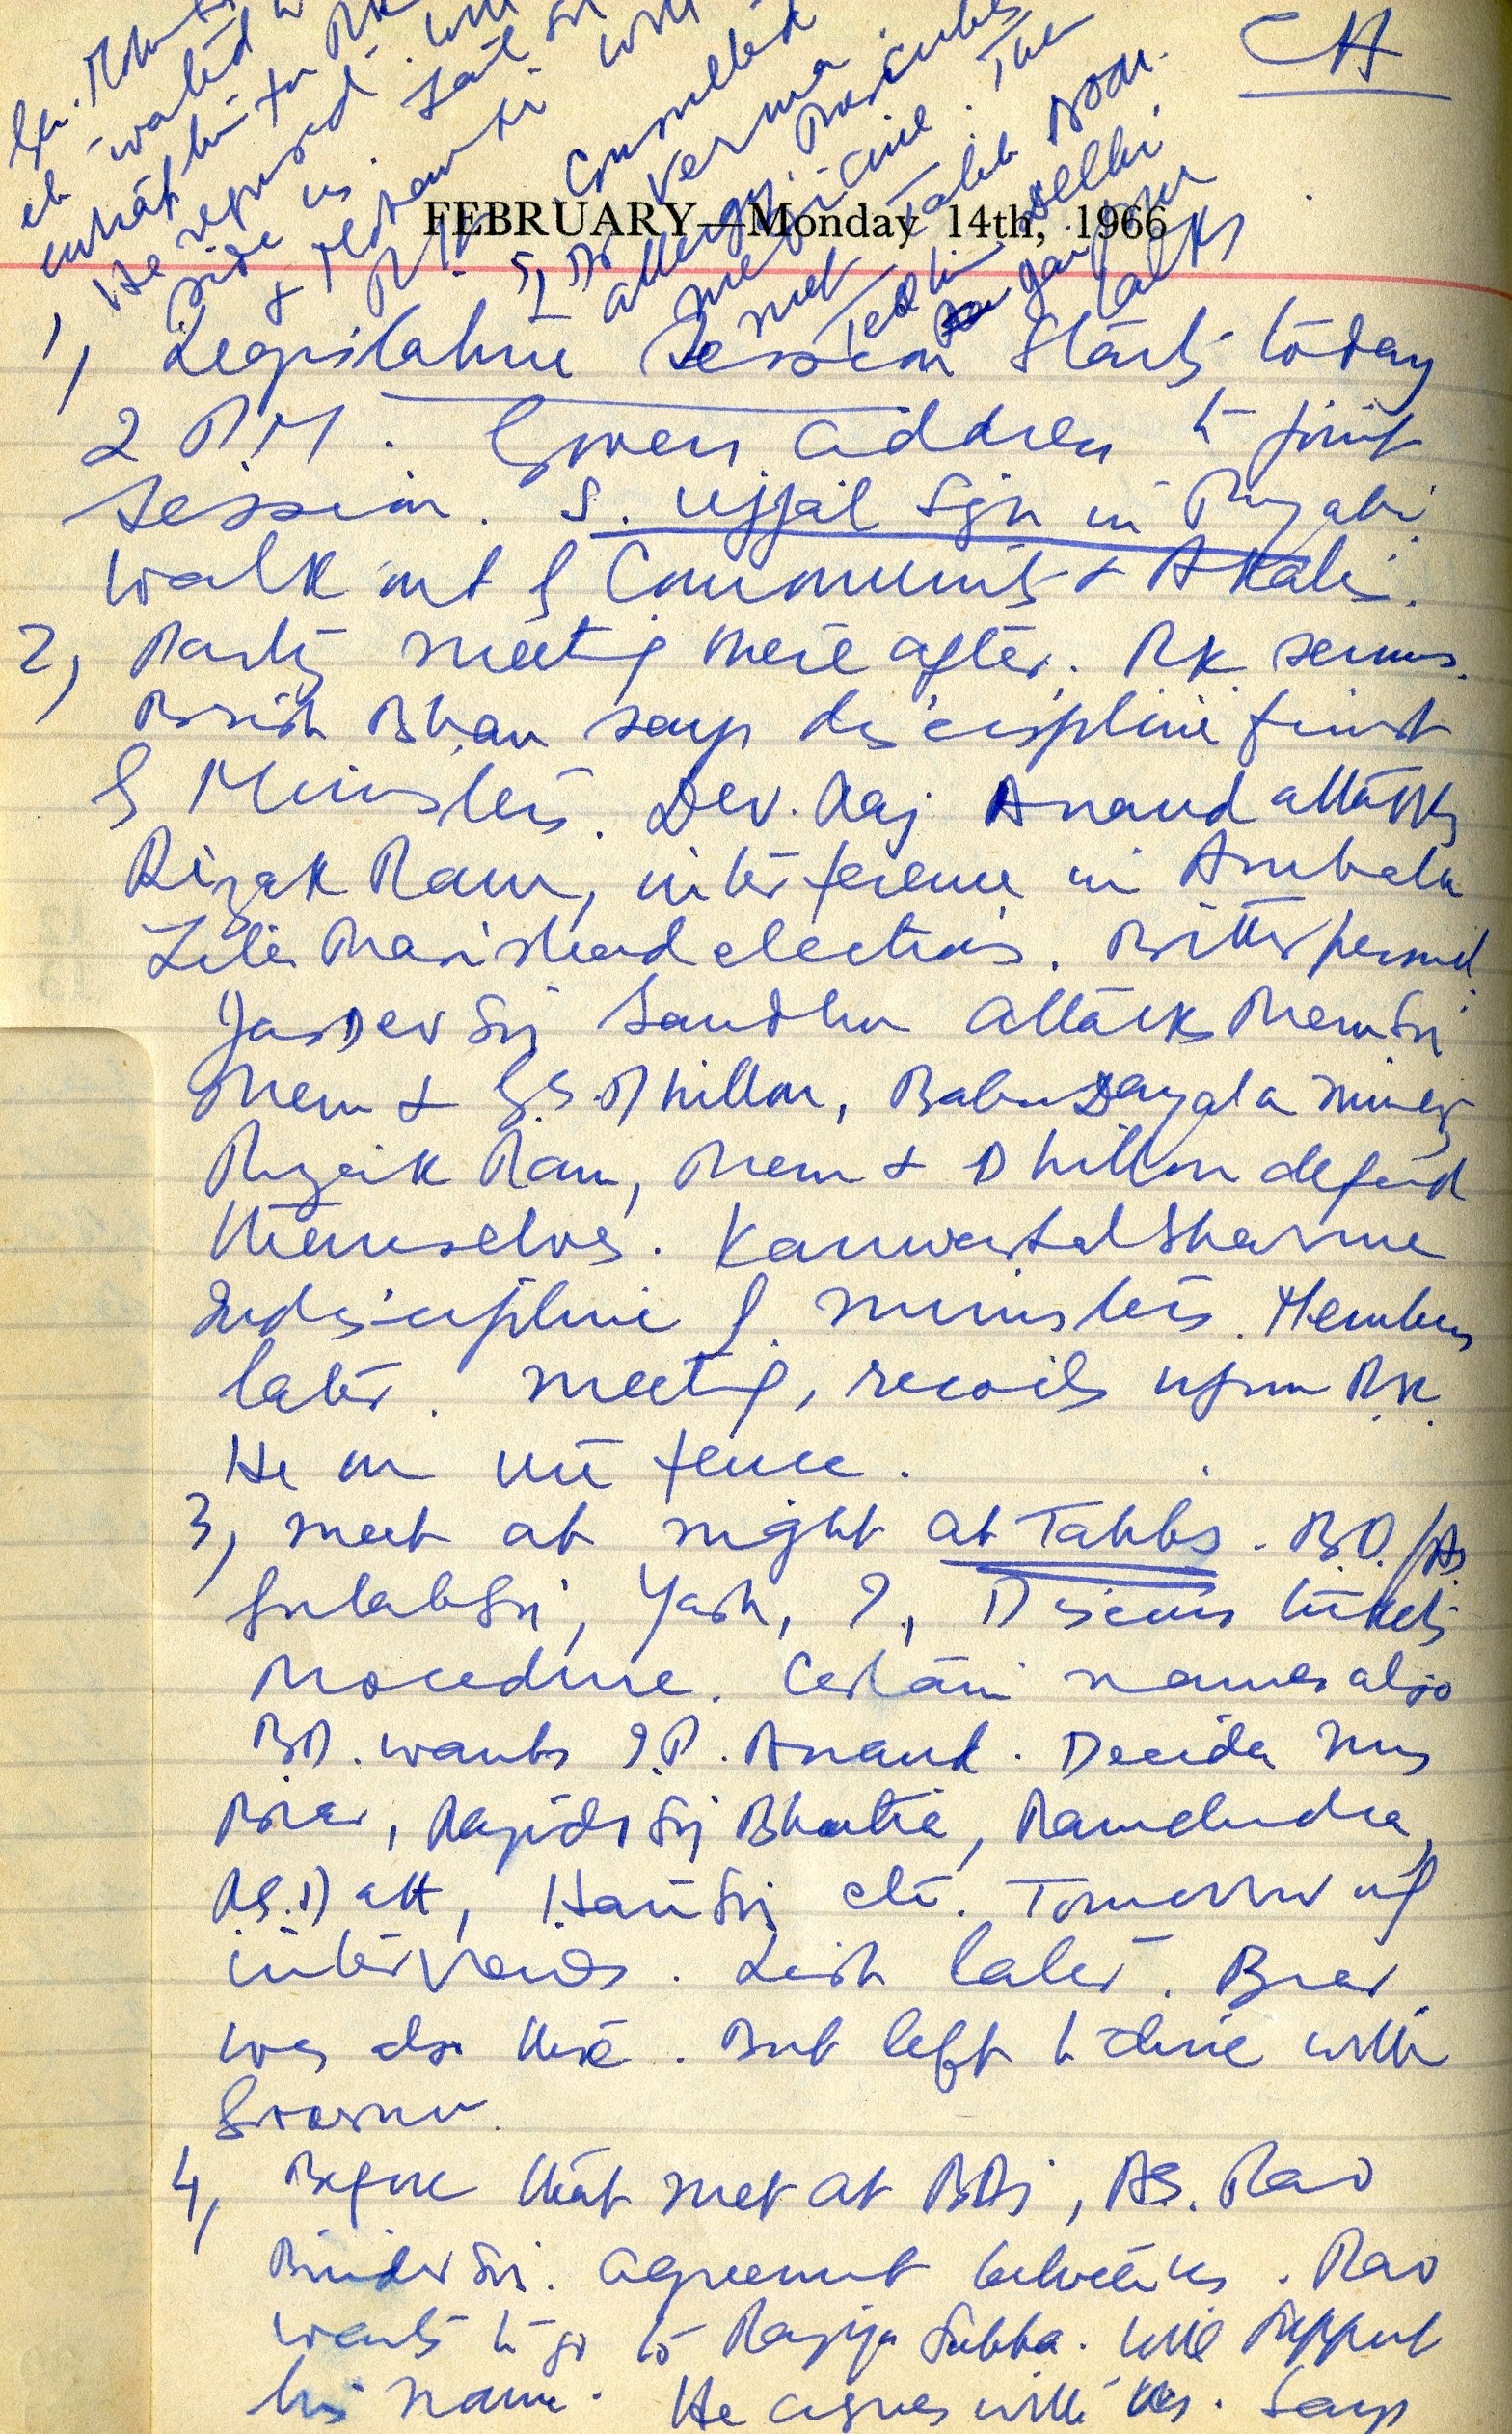 CH
FEBRUARY—Monday 14th, 1966
1, Legislative Session Starts today
2 PM. Govern address to joint
Session. S. Ujjal Sgh in Punjabi
walk out of Communists & Akalis.
2, Party meeting there after. RK serious.
Brish Bhan says discipline first
of Ministers. Dev. Raj Anand attacks
Rizak Ram, interference in Ambala
Zila Parishad elections. Bitter personal
Jasdev Sij Sandhu attacks Prem Sij
Prem & G.S. Dhillon, Babu Dayal a
Rizak Ram, Prem & Dhillon defend
themselves. Kanwarlal Sharma
Indiscipline of ministers. Members
later. meeting, recoils upon RK.
He on the fence.
3, meet at night at Tabbs. B.D.
Gulab Sij, Yash, I, Discuss tickets
Procedure. Certain names also
BD. wants I.P. Anand. Decide Mrs
Brar, Rajinder Sij Bhatia, Ramchndra,
R.S. Datt, Hari Sij etc. Tomorrow of
interviews. List later. Brar
was also there. But left to dine with
Governor.
4, Before that met at BDs, AS. Rao
Binder Sij. agreement between us. Rao
wants to go to Rajya Sabha. Will support
his name. He agrees with this. Says
He refused. will
side us.
Consulted
5, Dr Verma
allergy.
medicine. The
met Tabb
Tell him Delhi
talks